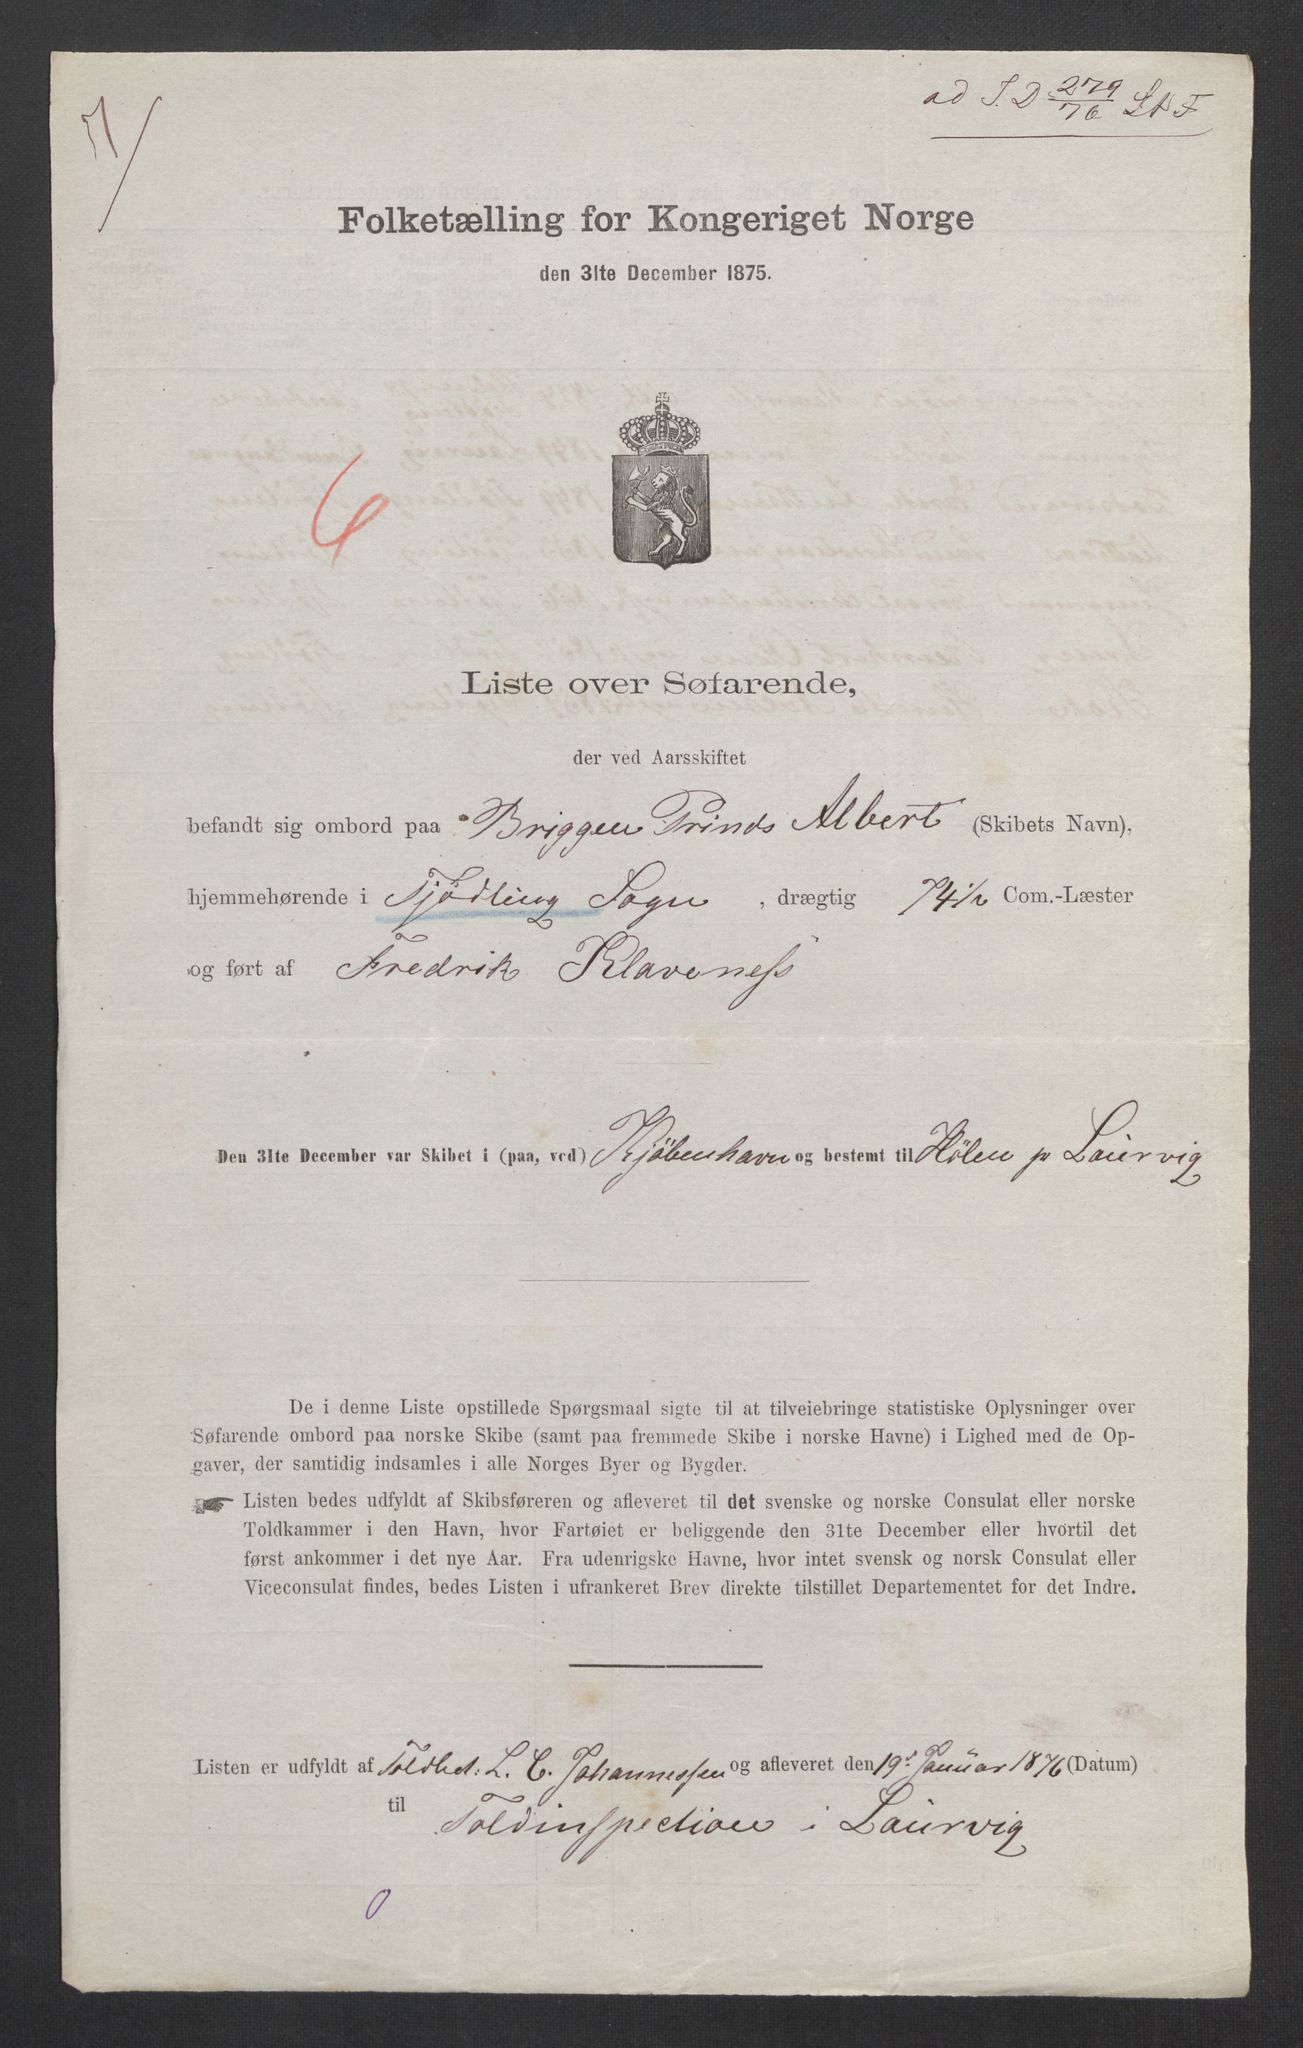 7/
ad I. D 279/76
Folketælling for Kongeriget Norge
den 31te December 1875.
6
Liste over Søfarende,
der ved Aarsskiftet
befandt sig ombord paa Briggen Prinds Albert (Skibets Navn),
hjemmehørende i Tjødling Sogn, drægtig 74½ Com.-Læster
og ført af Fredrik Klaveness
Den 31te December var Skibet i (paa, ved) Kjöbenhavn og bestemt til Hölen pr Laurvig
De i denne Liste opstillede Spørgsmaal sigte til at tilveiebringe statistiske Oplysninger over
Søfarende ombord paa norske Skibe (samt paa fremmede Skibe i norske Havne) i Lighed med de Op-
gaver, der samtidig indsamles i alle Norges Byer og Bygder.
☛ Listen bedes udfyldt af Skibsføreren og afleveret til det svenske og norske Consulat eller norske
Toldkammer i den Havn, hvor Fartøiet er beliggende den 31te December eller hvortil det
først ankommer i det nye Aar. Fra udenrigske Havne, hvor intet svensk og norsk Consulat eller
Viceconsulat findes, bedes Listen i ufrankeret Brev direkte tilstillet Departementet for det Indre.
Listen er udfyldt af Toldbet: L. C. Johannessen og afleveret den 19d Januar 1876 (Datum)
til Toldinspection i Laurvig
0